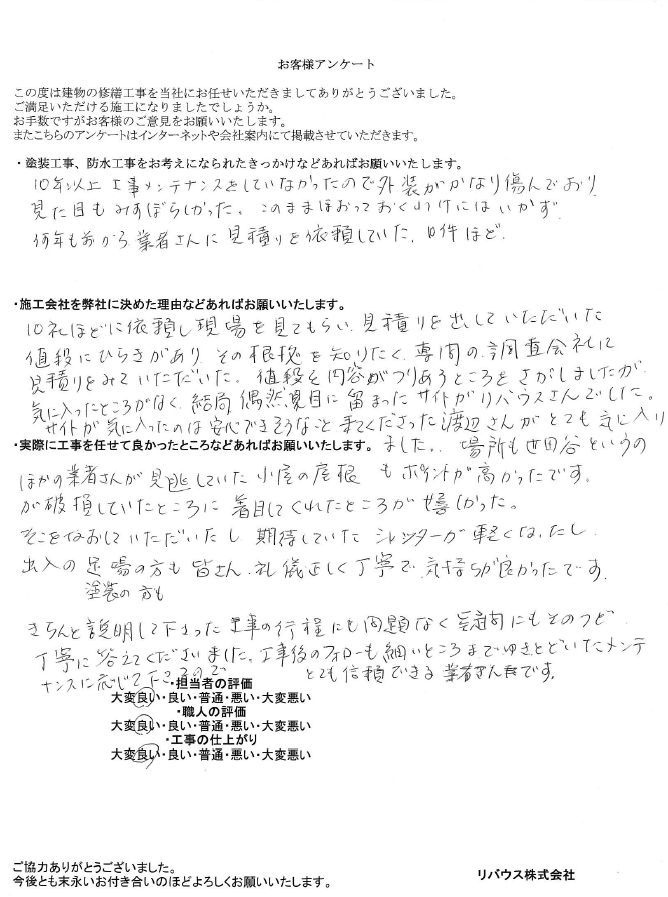 お客様アンケート
この度は建物の修繕工事を当社にお任せいただきましてありがとうございました。
ご満足いただける施工になりましたでしょうか。
お手数ですがお客様のご意見をお願いいたします。
またこちらのアンケートはインターネットや会社案内にて掲載させていただきます。
・塗装工事、防水工事をお考えになられたきっかけなどあればお願いいたします。
10年以上 工事メンテナンスをしていなかったので外装がかなり傷んでおり
見た目もみすぼらしかった。このままほおっておくわけにはいかず
何年も前から業者さんに見積りを依頼していた。10件ほど。
・施工会社を弊社に決めた理由などあればお願いいたします。
10社ほどに依頼し現場を見てもらい、見積りを出していただいた
値段にひらきがあり その根拠を知りたく、専門の調査会社に
見積りをみていただいた。値段と内容がつりあうところをさがしましたが
気に入ったところがなく、結局 偶然見目に留まったサイトがリバウスさんでした。
サイトが気に入ったのは安心できそうなと来てくださった渡辺さんがとても気に入り
・実際に工事を任せて良かったところなどあればお願いいたします。
ました。場所も世田谷というの
もポイントが高かったです。
ほかの業者さんが見逃していた小屋の屋根
が破損していたところに着目してくれたところが嬉しかった。
そこをなおしていただいたし 期待していた シャッターが軽くなったし
出入の足場の方も皆さん礼儀正しく丁寧で気持ちが良かったです
塗装の方も
きちんと説明して下さった 工事の行程にも問題なく 質問にもそのつど
丁寧に答えてくださいました。工事後のフォローも細いところまでゆきとどいたメンテ
ナンスに応じて下さるので とても信頼できる業者さんです。
・担当者の評価
大変良い・良い・普通・悪い・大変悪い
・職人の評価
大変良い・良い・普通・悪い・大変悪い
・工事の仕上がり
大変良い・良い・普通・悪い・大変悪い
ご協力ありがとうございました。
今後とも末永いお付き合いのほどよろしくお願いいたします。
リバウス株式会社